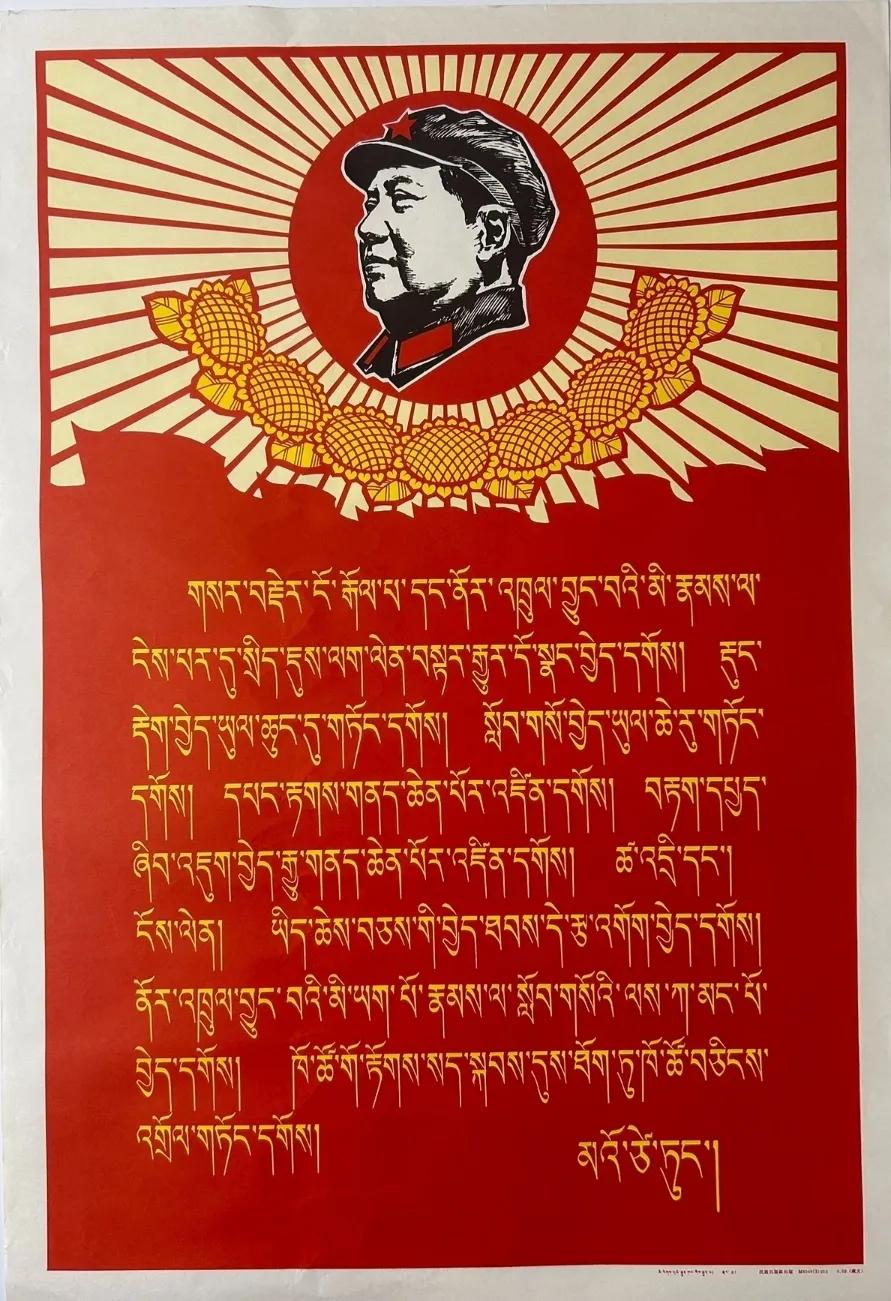 གསར་བརྗེར་ངོ་རྒོལ་པ་དང་ནོར་འཁྲུལ་བྱུང་བའི་མི་རྣམས་ལ་
ངེས་པར་དུ་སྲིད་ཇུས་ལག་ལེན་བསྟར་རྒྱུར་དོ་སྣང་བྱེད་དགོས། རྡུང་
རྡེག་བྱེད་ཡུལ་ཆུང་དུ་གཏོང་དགོས། སློབ་གསོ་བྱེད་ཡུལ་ཆེ་རུ་གཏོང་
དགོས། དཔང་རྟགས་གནད་ཆེན་པོར་འཛིན་དགོས། བརྟག་དཔྱད་
ཞིབ་འཇུག་བྱེད་རྒྱུ་གནད་ཆེན་པོར་འཛིན་དགོས། ཚ་འདྲི་དང་།
ངོས་ལེན། ཡིད་ཆེས་བཅས་གི་བྱེད་ཐབས་དེ་རྩ་འགོག་བྱེད་དགོས།
ནོར་འཁྲུལ་བྱུང་བའི་མི་ཡག་པོ་རྣམས་ལ་སློབ་གསོའི་ལས་ཀ་མང་པོ་
བྱེད་དགོས། ཁོ་ཚོ་གོ་རྟོགས་སད་སྐབས་དུས་ཐོག་ཏུ་ཁོ་ཚོ་བཅིངས་
འགྲོལ་གཏོང་དགོས།
མའོ་ཙེ་ཏུང་།